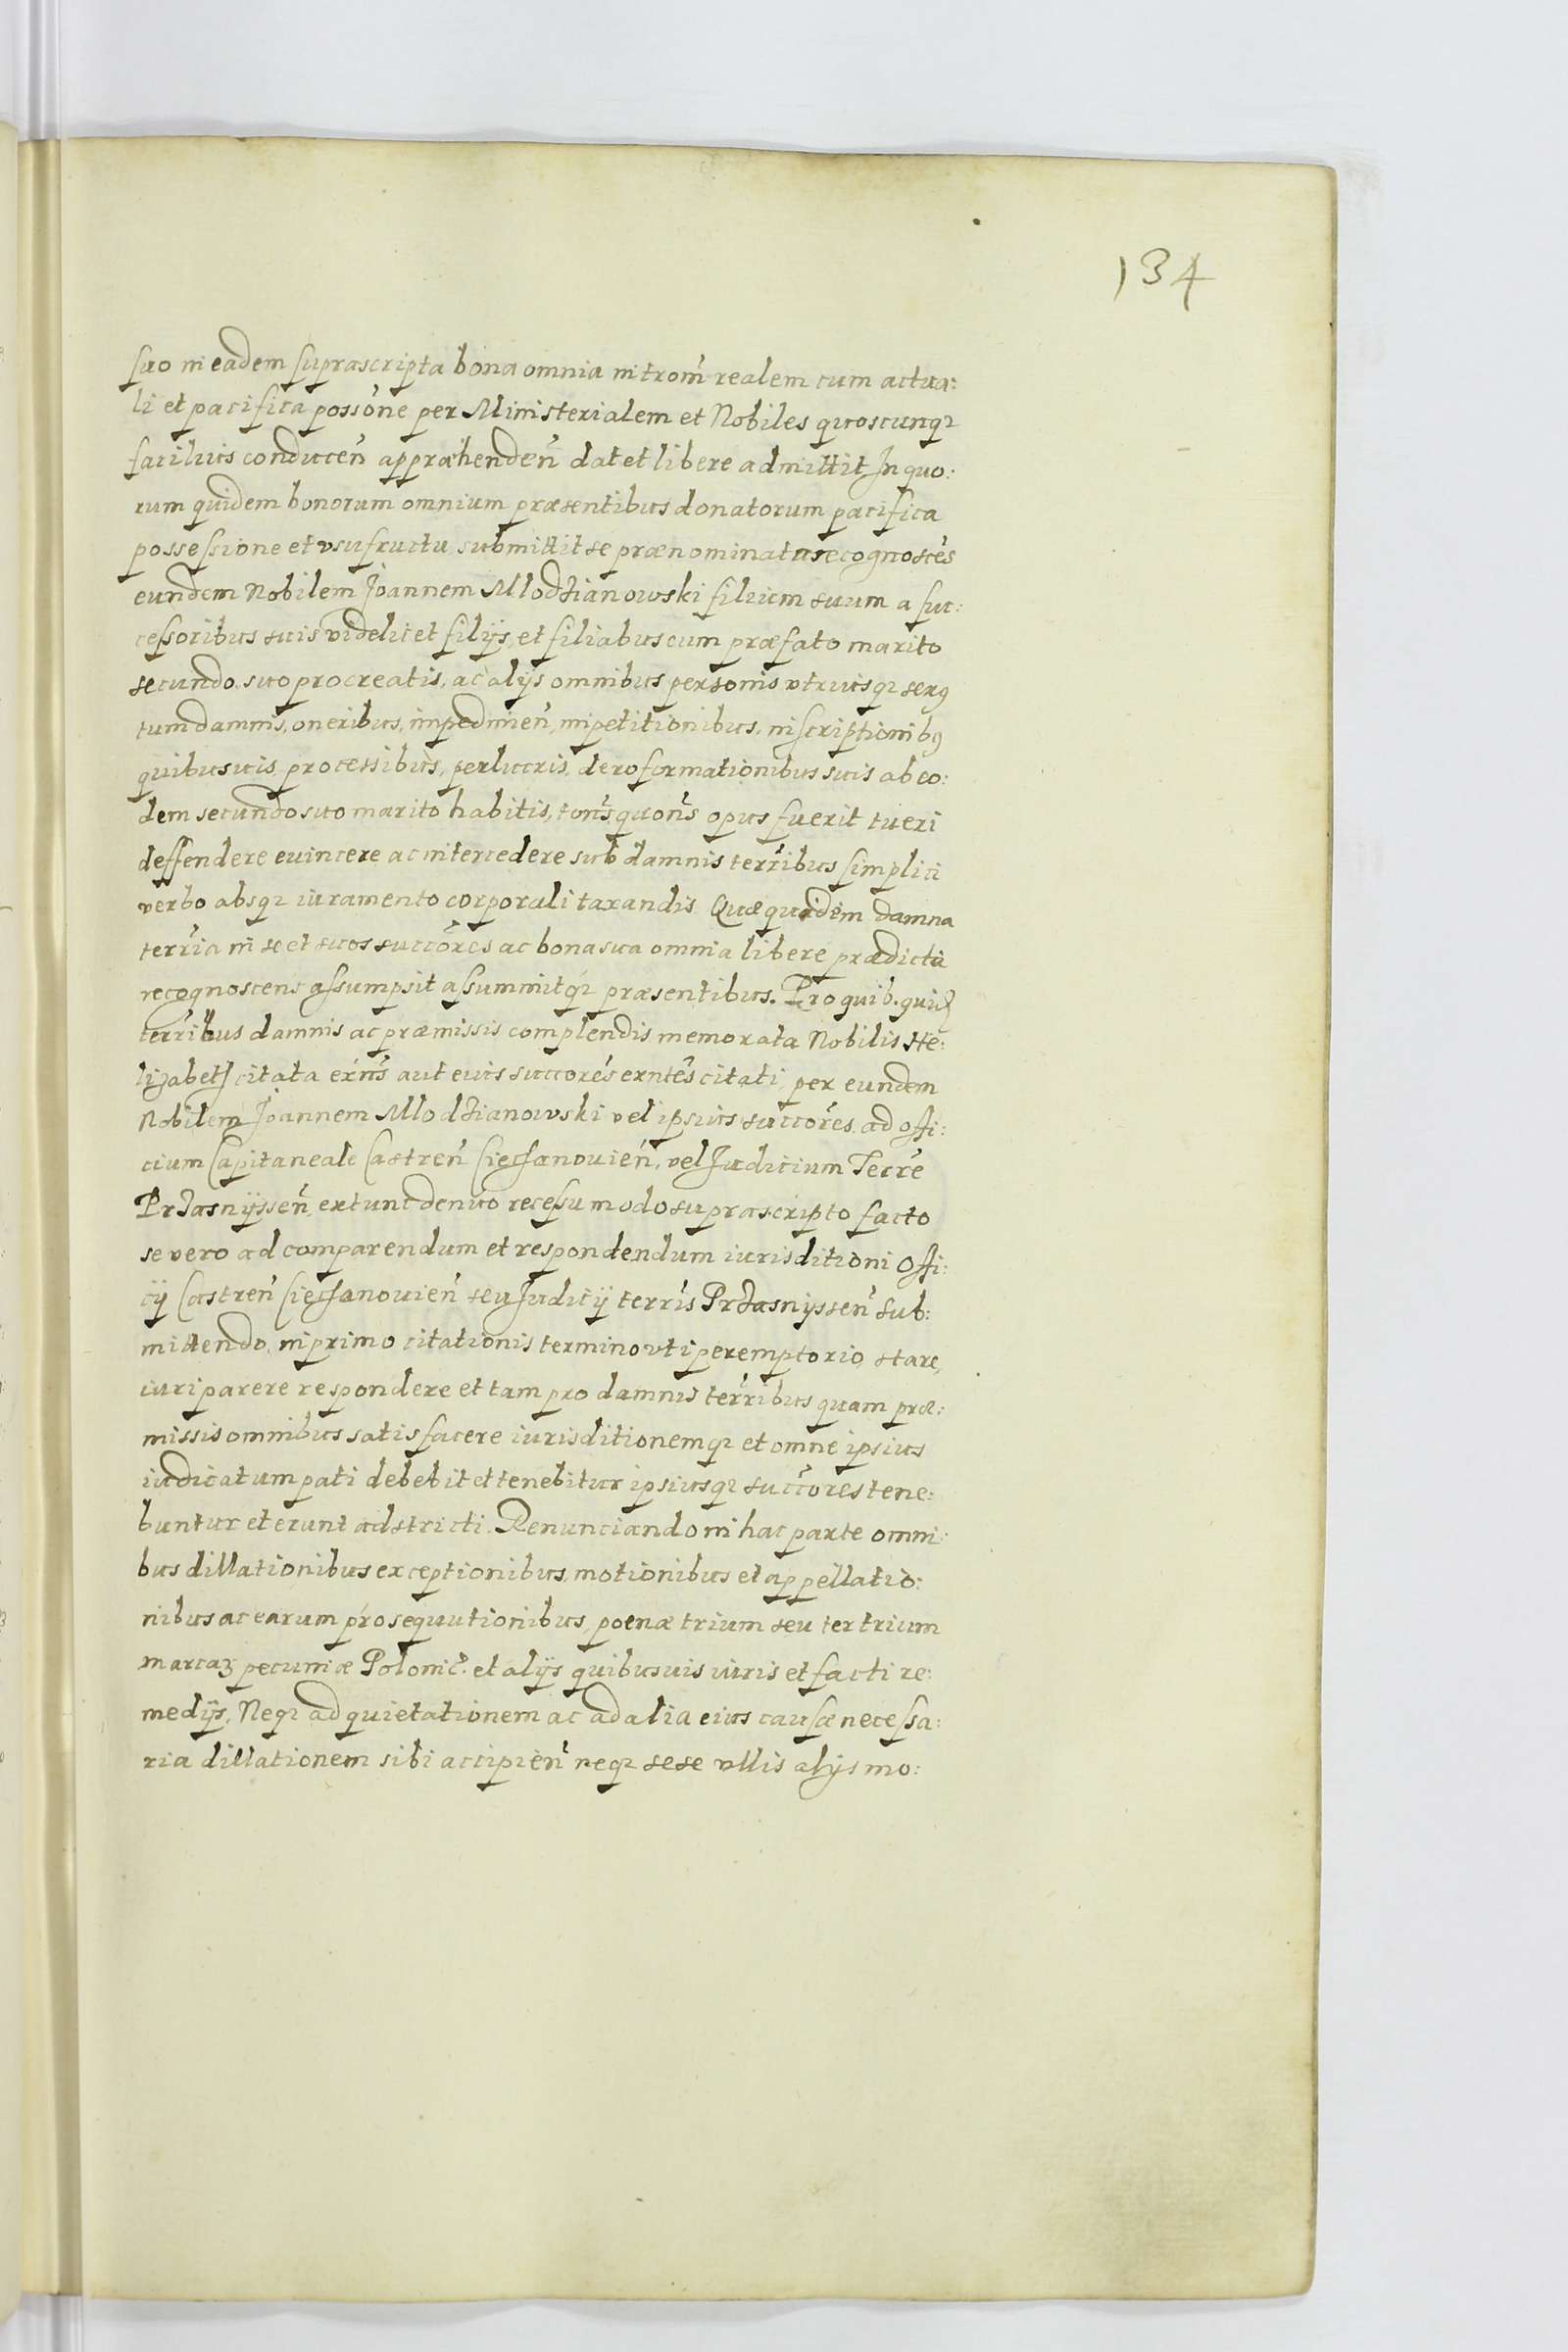 134
suo in eadem suprascripta bona omnia intrõm realem cum actua:
li et pacifica possõne per Ministerialem et Nobiles quoscunq3
facilius conduceñ appræhendeñ dat et libere admittit In quo:
rum quidem bonorum omnium præsentibus donatorum pacifica
possessione et vsufructu submittit se prænominata recognoscẽs
eundem Nobilem Joannem Mlodzianowski filium suum a suc:
cessoribus suis videlicet filijs, et filiabus cum præfato marito
secundo suo procreatis, ac alijs omnibus personis vtriusq3 sexꝰ
tum damnis, oneribus, impedimeñ, impetitionibus, inscriptionibꝰ
quibusuis processibus, perlucris, de reformationibus suis ab eo:
dem secundo suo marito habitis, tones quones opus fuerit tueri
deffendere euincere ac intercedere sub damnis terribus simplici
verbo absq3 iuramento corporali taxandis Quæ quidem damna
terria in se et suos succores ac bona sua omnia libere prædicta
recognoscens assumpsit assummitq3 præsentibus. Pro quib. quid
terribus damnis ac præmissis complendis memorata Nobilis He:
lizabeth citata exñs aut eius succores exntes citati, per eundem
Nobilem Joannem Mlodzianowski vel ipsius succores ad offi:
cium Capitaneale Castreñ Ciechanouieñ, vel Judicium Terre
Przasnijsseñ, extunc denuo recessu modo suprascripto facto
se vero ad comparendum et respondendum iurisditioni Offi:
cij Castreñ Ciechanouieñ seu Judicij terris Przasnijsseñ sub:
mittendo, in primo citationis termino vti peremptorio stare,
iuri parere respondere et tam pro damnis terribus quam præ:
missis omnibus satisfacere iurisditionemq3 et omne ipsius
iudicatum pati debebit et tenebitur ipsiusq3 succores tene:
buntur et erunt adstricti. Renunciando in hac parte omni:
bus dillationibus exceptionibus, motionibus et appellatio:
nibus ac earum prosequutionibus, poenæ trium seu ter trium
marcaꝝ pecuniæ Polonic. et alijs quibusuis iuris et facti re:
medijs, Neq3 ad quietationem ac ad alia eius causæ necessa:
ria dillationem sibi accipieñ neq3 sese vllis alijs mo: